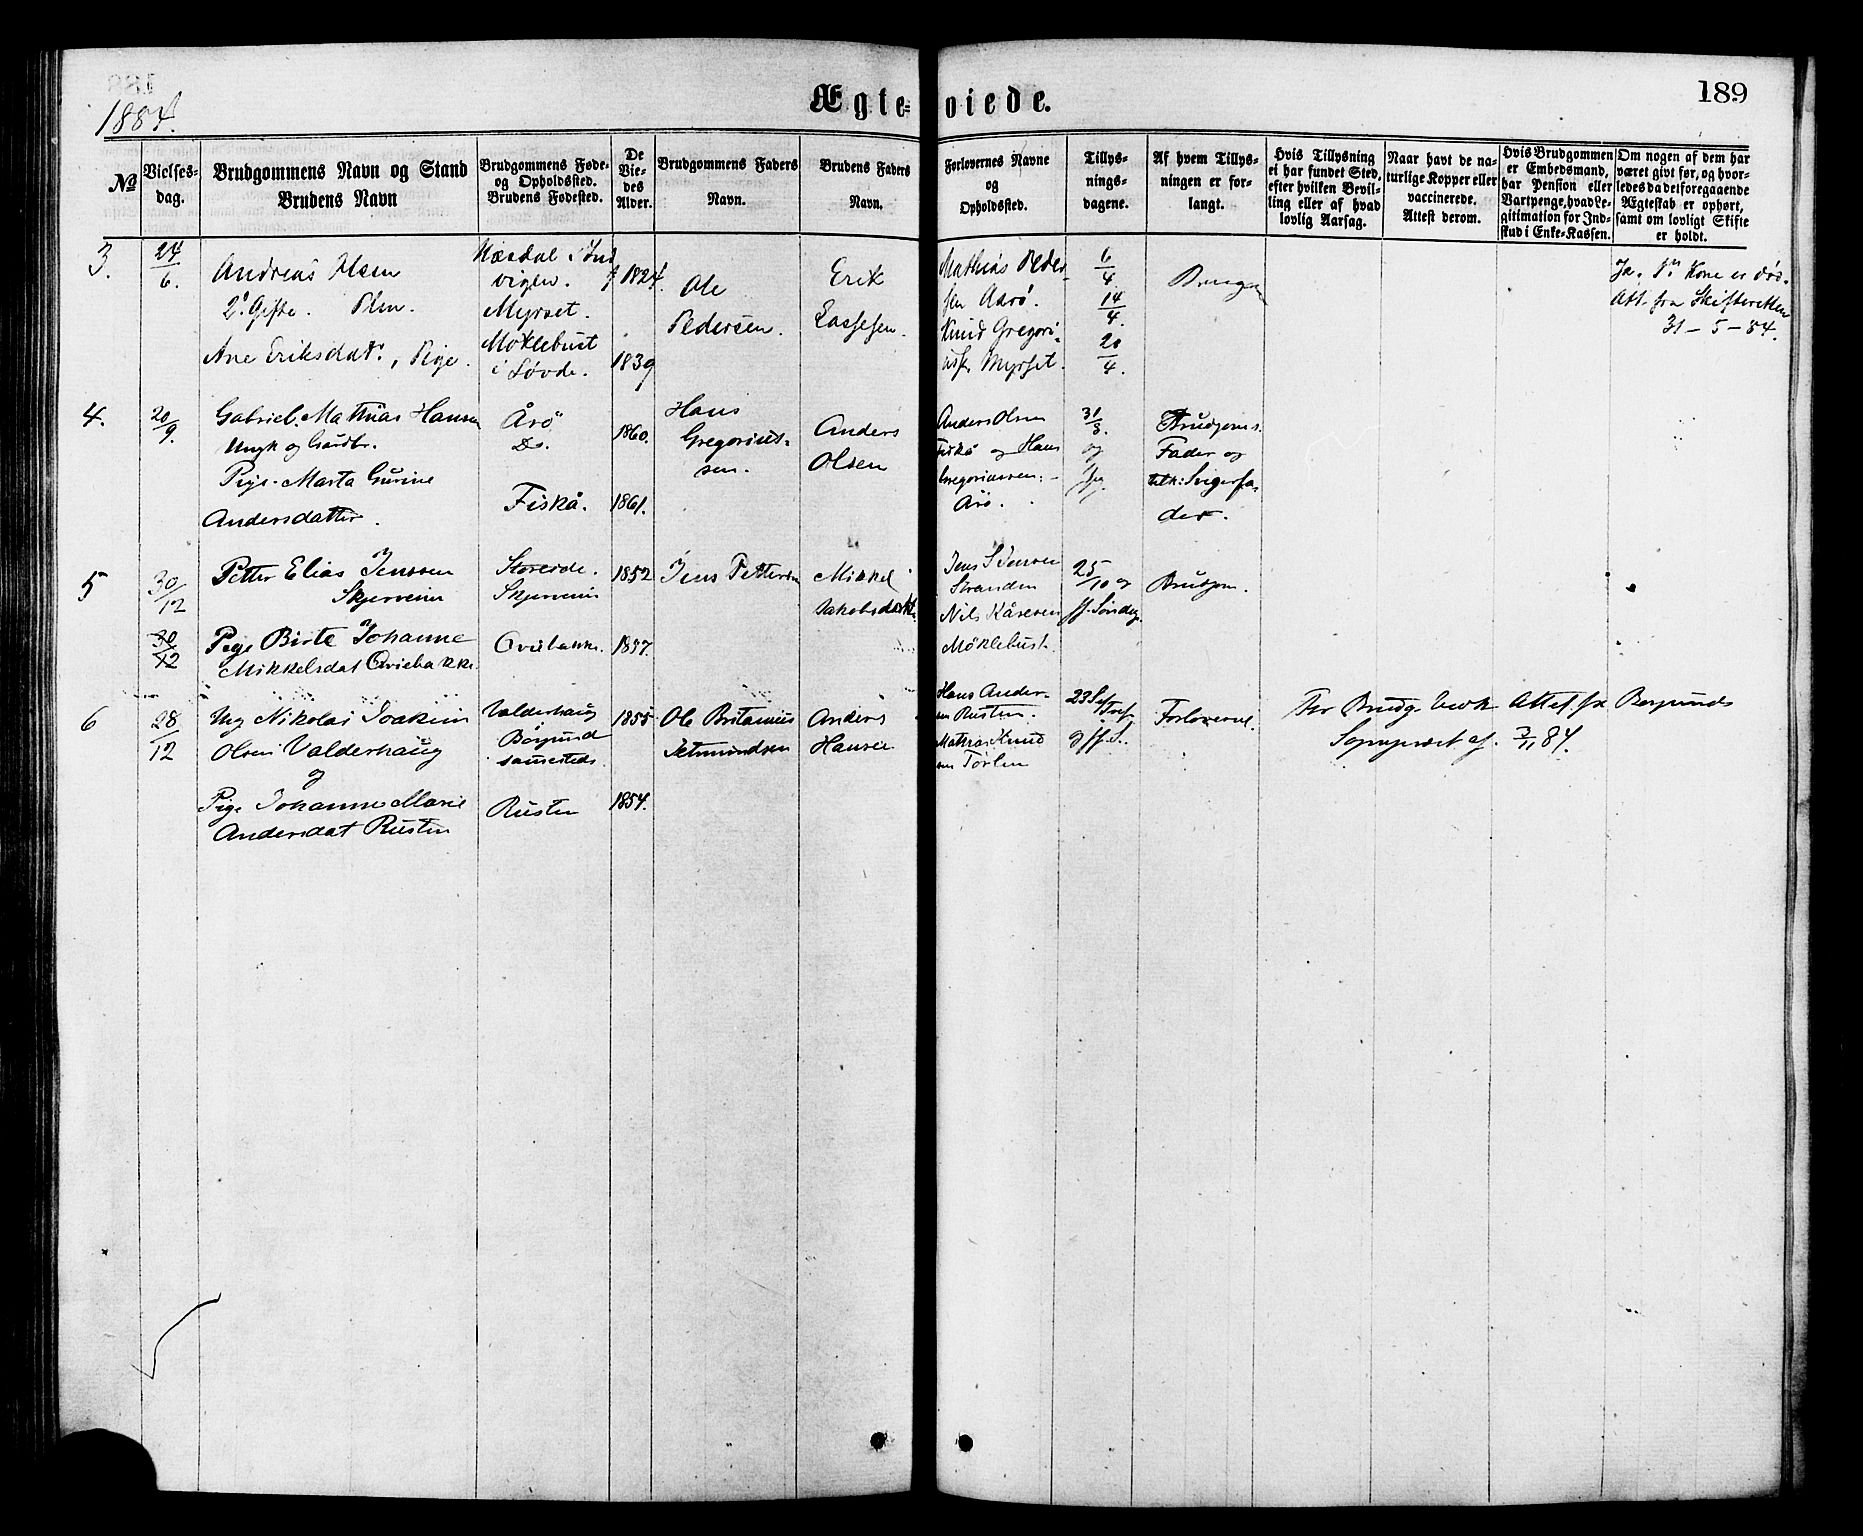 1884.
Ægte-viede.
189
No
Vielses-
dag.
Brudgommens Navn og Stand
Brudens Navn
Brudgommens Føde-
og Opholdssted.
Brudens Fødested.
De
Vie-
des
Alder.
Brudgommens Faders
Navn.
Brudens Faders
Navn.
Forlovernes Navne
og
Opholdssted.
Tillys-
nings-
dagene.
Af hvem Tillys-
ningen er for-
langt.
Hvis Tillysning
ei har fundet Sted,
efter hvilken Bevil-
ling eller af hvad
lovlig Aarsag.
Naar havt de na-
turlige Kopper eller
vaccinerede.
Attest derom.
Hvis Brudgommen
er Embedsmand,
har Pension eller
Vartpenge, hvad Le-
gitimation for Ind-
skud i Enke-Kassen.
Om nogen af dem har
været givt før, og hvor-
ledes da det foregaaende
Ægteskab er ophørt,
samt om lovligt Skifte
er holdt.
3.
24/6.
Andreas Olsen
2. Gifte.
Ane Eriksdatr., Pige.
Myrset.
Møklebust
i Søvde.
f 1824.
1839
Ole
Pedersen.
Erik
Lassesen.
Mathias Peder
sen Aarø.
Knud Gregori-
ussen Myrset.
6/4.
14/4.
20/4.
Ja. 1ste Kone er død.
Att. fra Skifteretten
31-5-84.
4.
20/9.
Gabriel Mathias Hansen
Ungk og Gårdbr.
Pige Marta Gurine
Andersdatter.
Årö
Do.
Fiskå.
1860.
1861.
Hans
Gregorius-
sen.
Anders
Olsen
Anders Olsen
Fiskå og Hans
Gregoriussen
Årö.
31/8.
og
Brudgoms.
Fader og
Svigerfa
der.
5
30/12
Petter Elias Jenssen
Skjerveim
Pige Birte Johanne
Mikkelsdat Qviebakke
Skjerveim
Qviebakke.
1852
1857.
Jens Pettersen
Mikkel
Jens S Jensen
Stranden
Nils Kåresen
Møklebust.
25/10 og
ff. Søndag.
Brudgom.
6
28/12
Ung Nikolai Joakim
Olsen Valderhaug
og
Pige Johanne Marie
Andersdat Rusten
Valderhaug
Borgund
sammesteds
Rusten
1855
1854.
Ole Britanius
Jetmundsen
Anders
Hansen
Hans Ander-
sen Rusten.
Mathias Knud
sen Tørlen
23 S.
og ff. S.
Forloverne
For Brudg. Attest fra Borgunds
Sogneprest af 3/11 84.